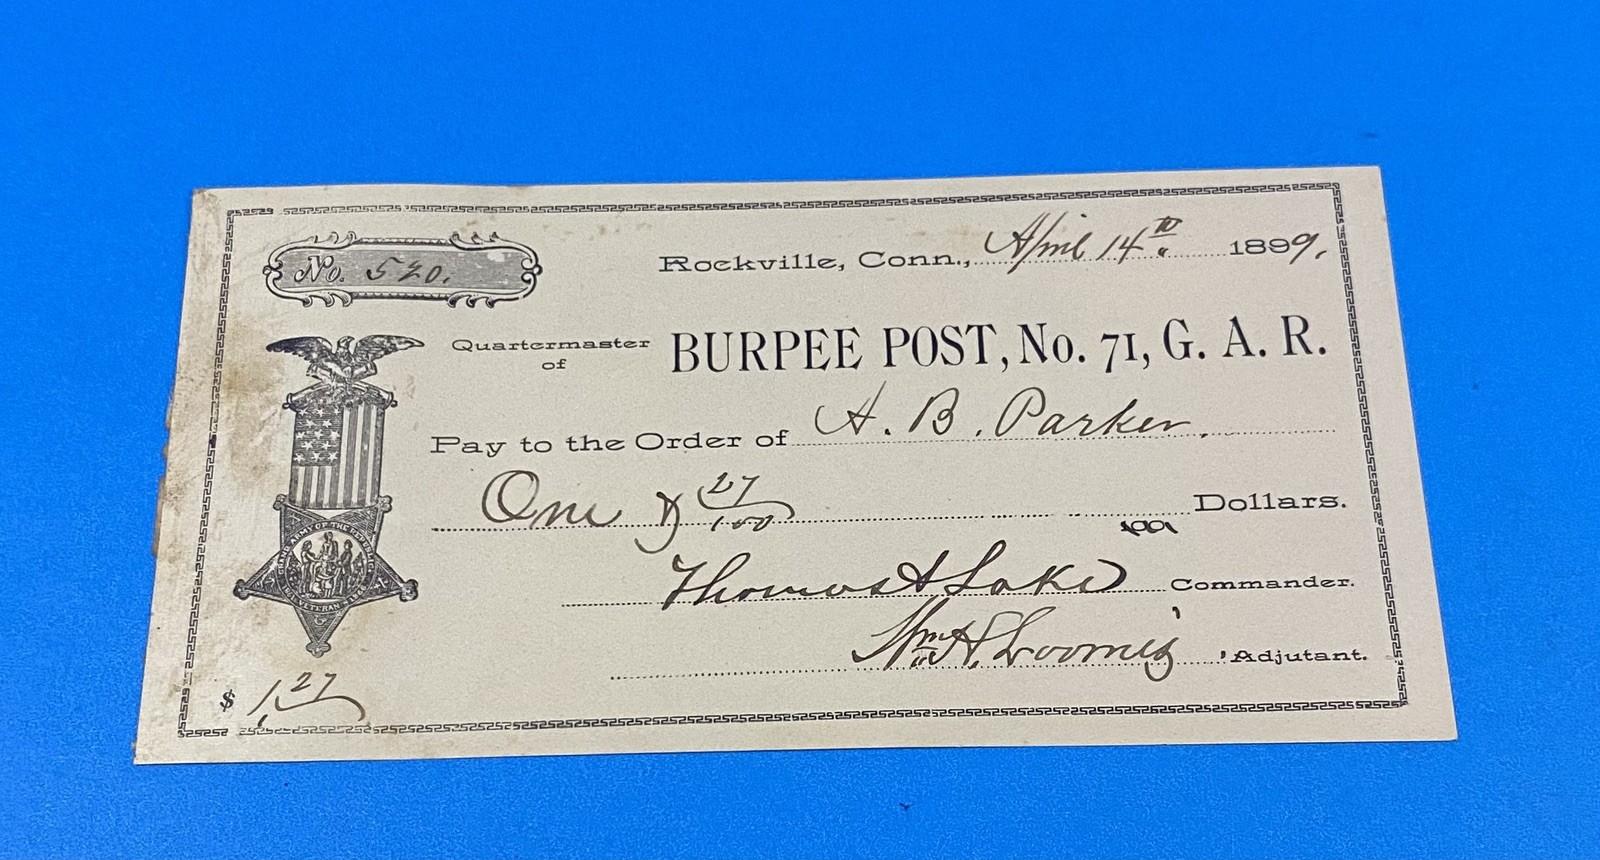 No. 520.
Rockville, Conn., April 14th 1899.
Quartermaster of BURPEE POST, No. 71, G. A. R.
Pay to the Order of A. B. Parker.
One & 27/100 Dollars.
Thomas A Lake Commander.
Wm H. Loomis, Adjutant.
GRAND ARMY OF THE REPUBLIC
VETERAN
$ 1 27